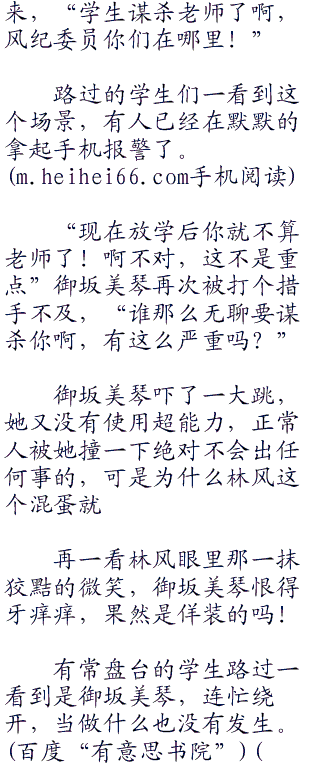 来，“学生谋杀老师了啊，
风纪委员你们在哪里！”
路过的学生们一看到这
个场景，有人已经在默默的
拿起手机报警了。
(m.heihei66.com手机阅读)
“现在放学后你就不算
老师了！啊不对，这不是重
点”御坂美琴再次被打个措
手不及，“谁那么无聊要谋
杀你啊，有这么严重吗？”
御坂美琴吓了一大跳，
她又没有使用超能力，正常
人被她撞一下绝对不会出任
何事的，可是为什么林风这
个混蛋就
再一看林风眼里那一抹
狡黠的微笑，御坂美琴恨得
牙痒痒，果然是佯装的吗！
有常盘台的学生路过一
看到是御坂美琴，连忙绕
开，当做什么也没有发生。
(百度“有意思书院”)(